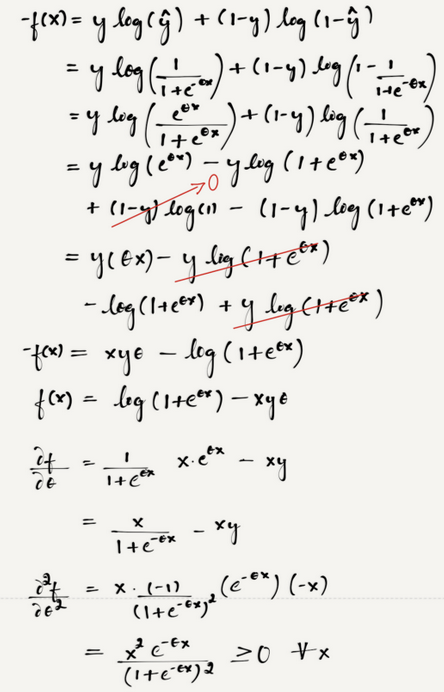 -f(x) = y log(ŷ) + (1-y) log(1-ŷ)
= y log(1/(1+e^-θx)) + (1-y) log(1 - 1/(1+e^-θx))
= y log(e^θx/(1+e^θx)) + (1-y) log(1/(1+e^θx))
= y log(e^θx) - y log(1+e^θx)
0
+ (1-y) log(1) - (1-y) log(1+e^θx)
= y(θx) - y log(1+e^θx)
- log(1+e^θx) + y log(1+e^θx)
-f(x) = xyθ - log(1+e^θx)
f(x) = log(1+e^θx) - xyθ
∂f/∂θ = 1/(1+e^θx) x·e^θx - xy
= x/(1+e^-θx) - xy
∂²f/∂θ² = x·(-1)/(1+e^-θx)² (e^-θx)(-x)
= x² e^-θx/(1+e^-θx)² ≥ 0 ∀x